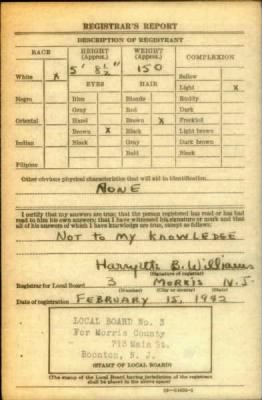 REGISTRAR'S REPORT
DESCRIPTION OF REGISTRANT
RACE HEIGHT (Approx.) WEIGHT (Approx.) COMPLEXION
5' 8½" 150 Sallow
White X EYES HAIR Light X
Negro Blue Blonde Ruddy
Gray Red Dark
Oriental Hazel Brown X Freckled
Brown X Black Light brown
Indian Black Gray Dark brown
Bald Black
Filipino
Other obvious physical characteristics that will aid in identification
NONE
I certify that my answers are true; that the person registered has read or has had
read to him his own answers; that I have witnessed his signature or mark and that
all of his answers of which I have knowledge are true, except as follows:
NOT TO MY KNOWLEDGE
B. Williams
(Signature of registrar)
Registrar for Local Board 3 MORRIS N. J.
(Number) (City or county) (State)
Date of registration FEBRUARY 15, 1942
LOCAL BOARD No. 3
For Morris County
713 Main St.
Boonton, N. J.
(STAMP OF LOCAL BOARD)
(The stamp of the Local Board having jurisdiction of the registrant
shall be placed in the above space)